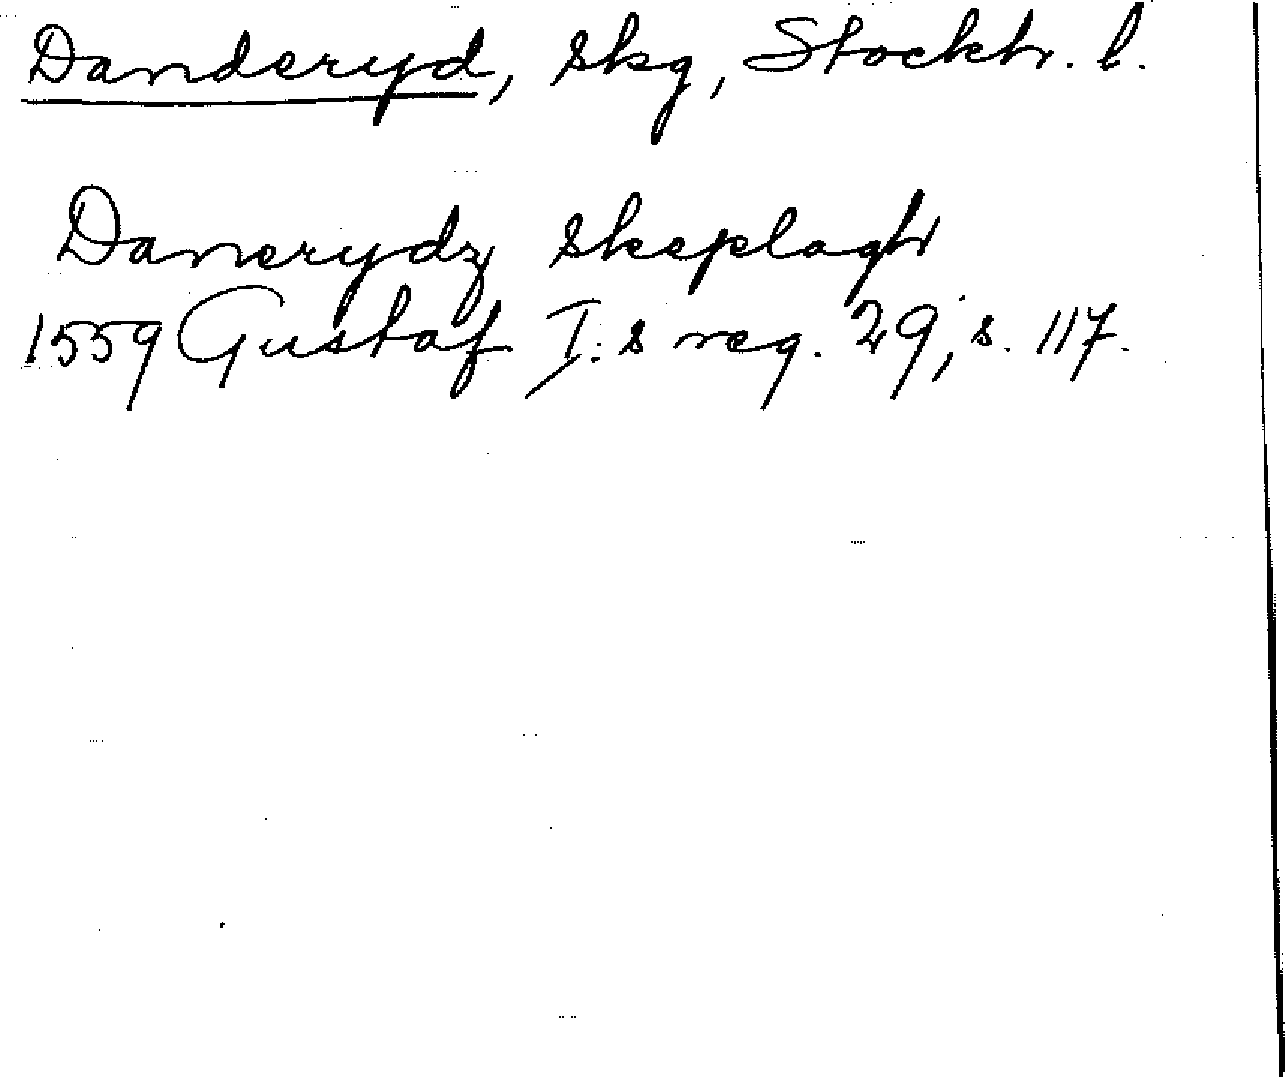 Danderyd, Skg, Stockh. l.
Danerydz skeplagh
1559 Gustaf I:s reg. 29, s. 117.